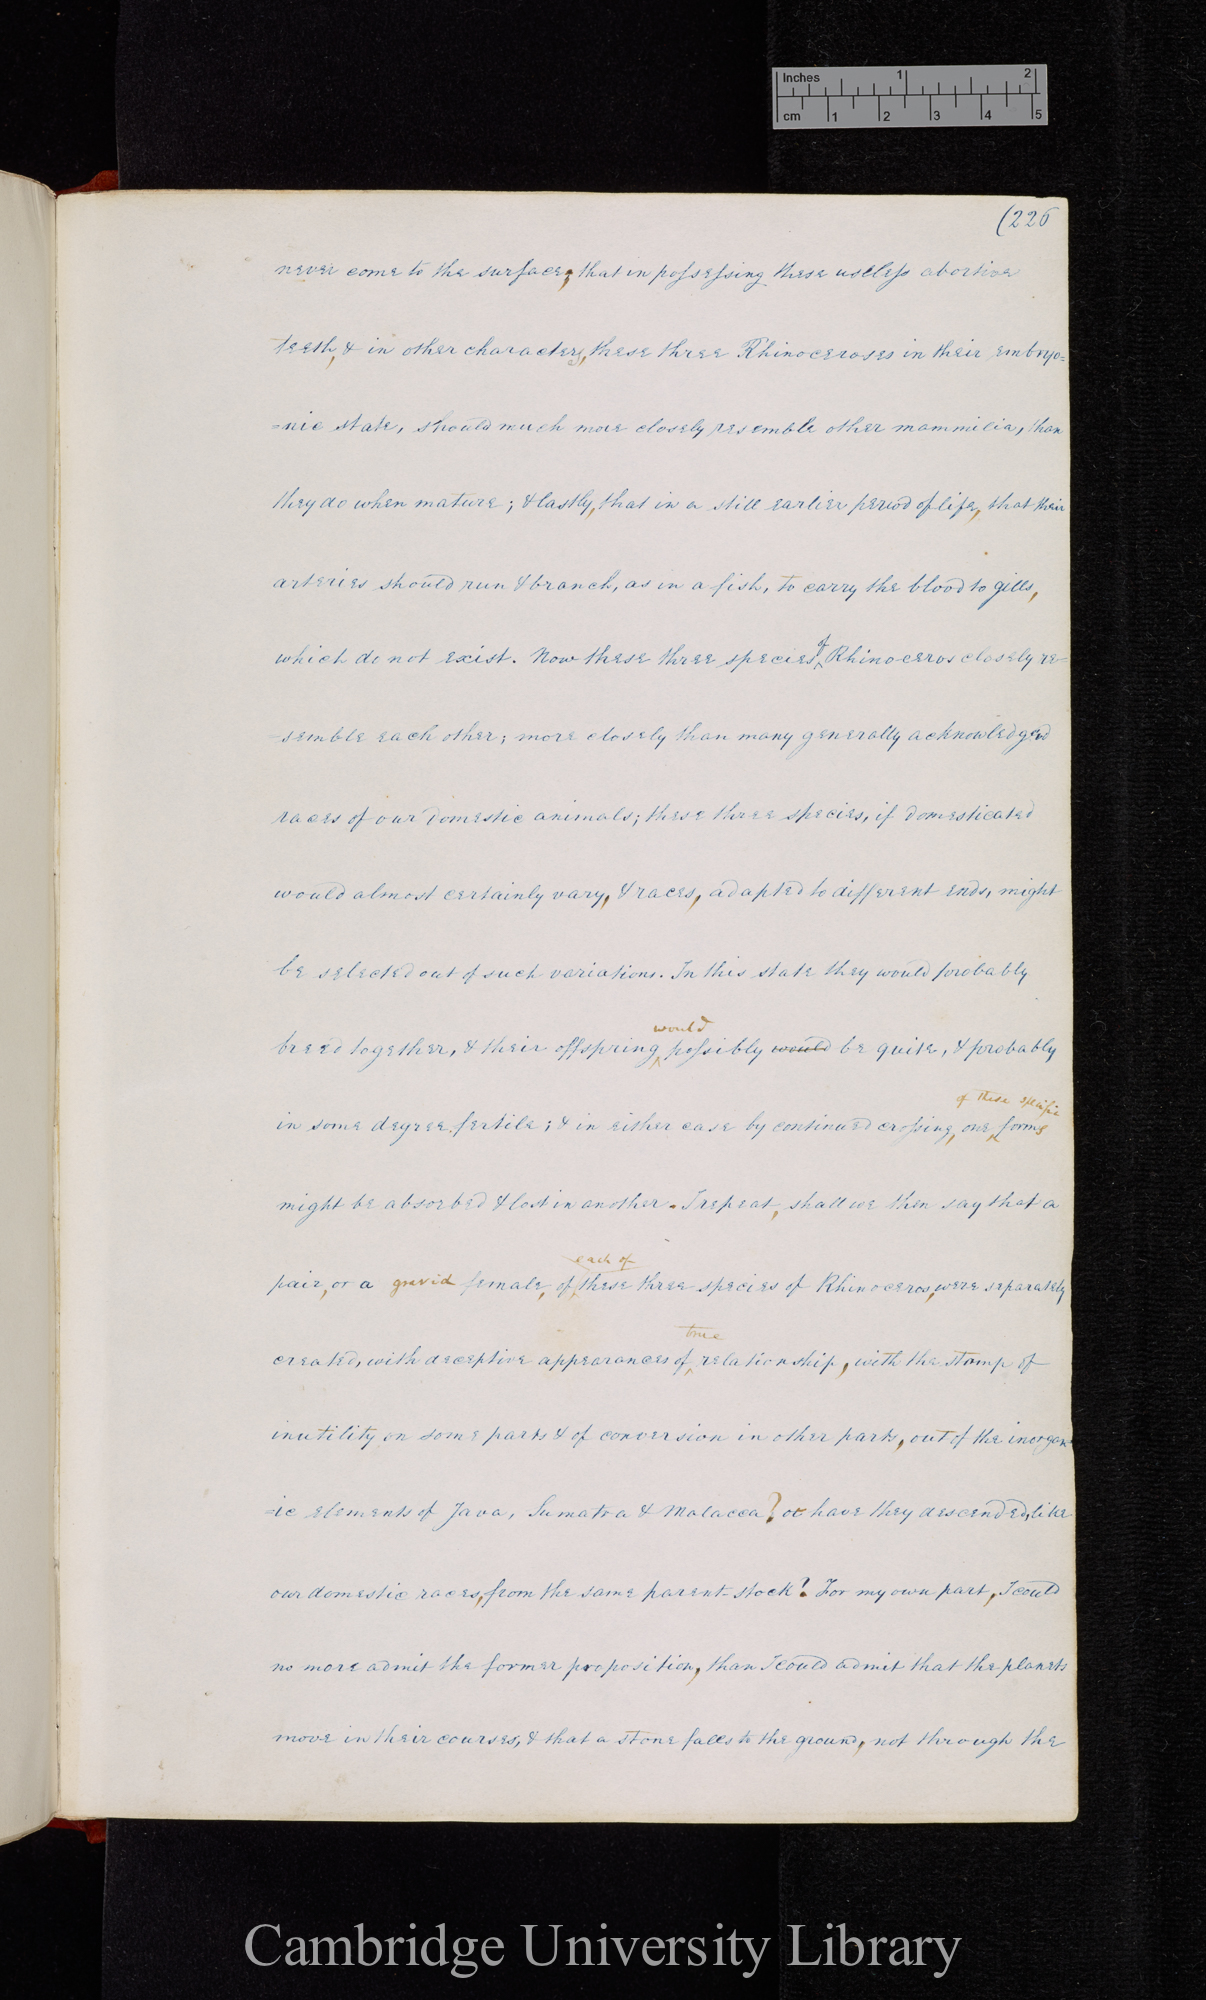 Inches 1 2
cm 1 2 3 4 5
(226
never come to the surface; that in possessing these useless abortive
teeth, & in other characters, these three Rhinoceroses in their embryo=
=nic state, should much more closely resemble other mammilia, than
they do when mature; & lastly, that in a still earlier period of life, that their
arteries should run & branch, as in a fish, to carry the blood to gills,
of
which do not exist. Now these three species Rhinoceros closely re-
-semble each other; more closely than many generally acknowledged
races of our domestic animals; these three species, if domesticated
would almost certainly vary, & races, adapted to different ends, might
be selected out of such variations. In this state they would probably
would
breed together, & their offspring possibly would be quite, & probably
of these specific
in some degree fertile; & in either case by continued crossing, one forms
might be absorbed & lost in another. I repeat, shall we then say that a
each of
pair, or a gravid female, of these three species of Rhinoceros, were separately
true
created, with deceptive appearances of relationship, with the stamp of
inutility on some parts & of conversion in other parts, out of the inorgan
=ic elements of Java, Sumatra & Malacca? or have they descended, like
our domestic races, from the same parent-stock? For my own part, I could
no more admit the former proposition, than I could admit that the planets
move in their courses, & that a stone falls to the ground, not through the
Cambridge University Library